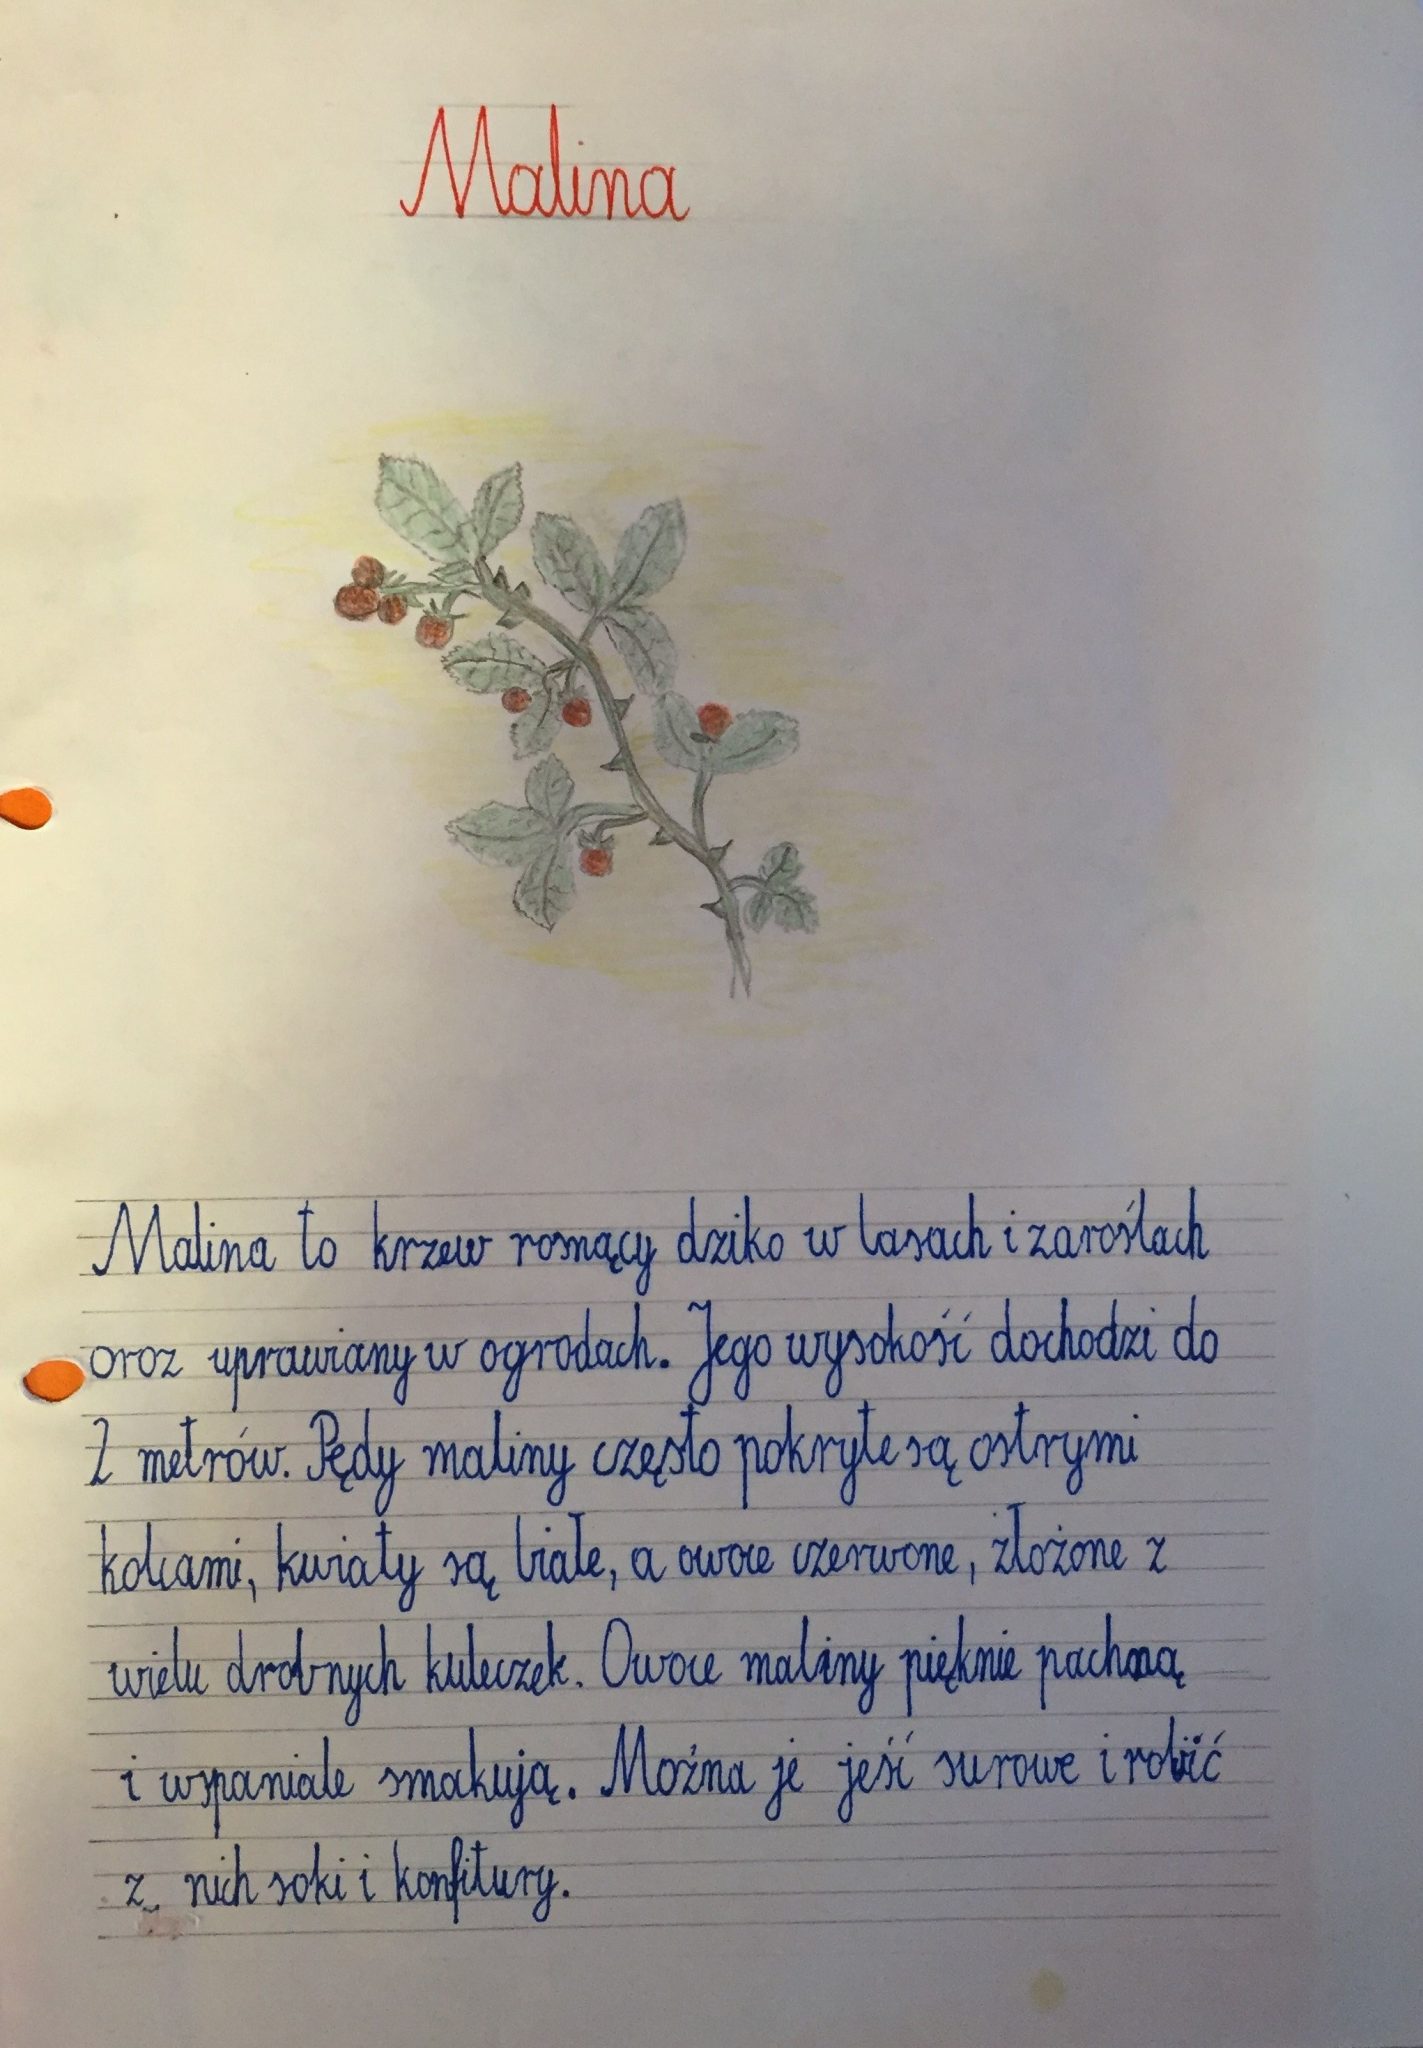 Malina
Malina to krzew rosnący dziko w lasach i zaroślach
oraz uprawiany w ogrodach. Jego wysokość dochodzi do
2 metrów. Pędy maliny często pokryte są ostrymi
kolcami, kwiaty są białe, a owoce czerwone, złożone z
wielu drobnych kuleczek. Owoce maliny pięknie pachną
i wspaniale smakują. Można je jeść surowe i robić
z nich soki i konfitury.